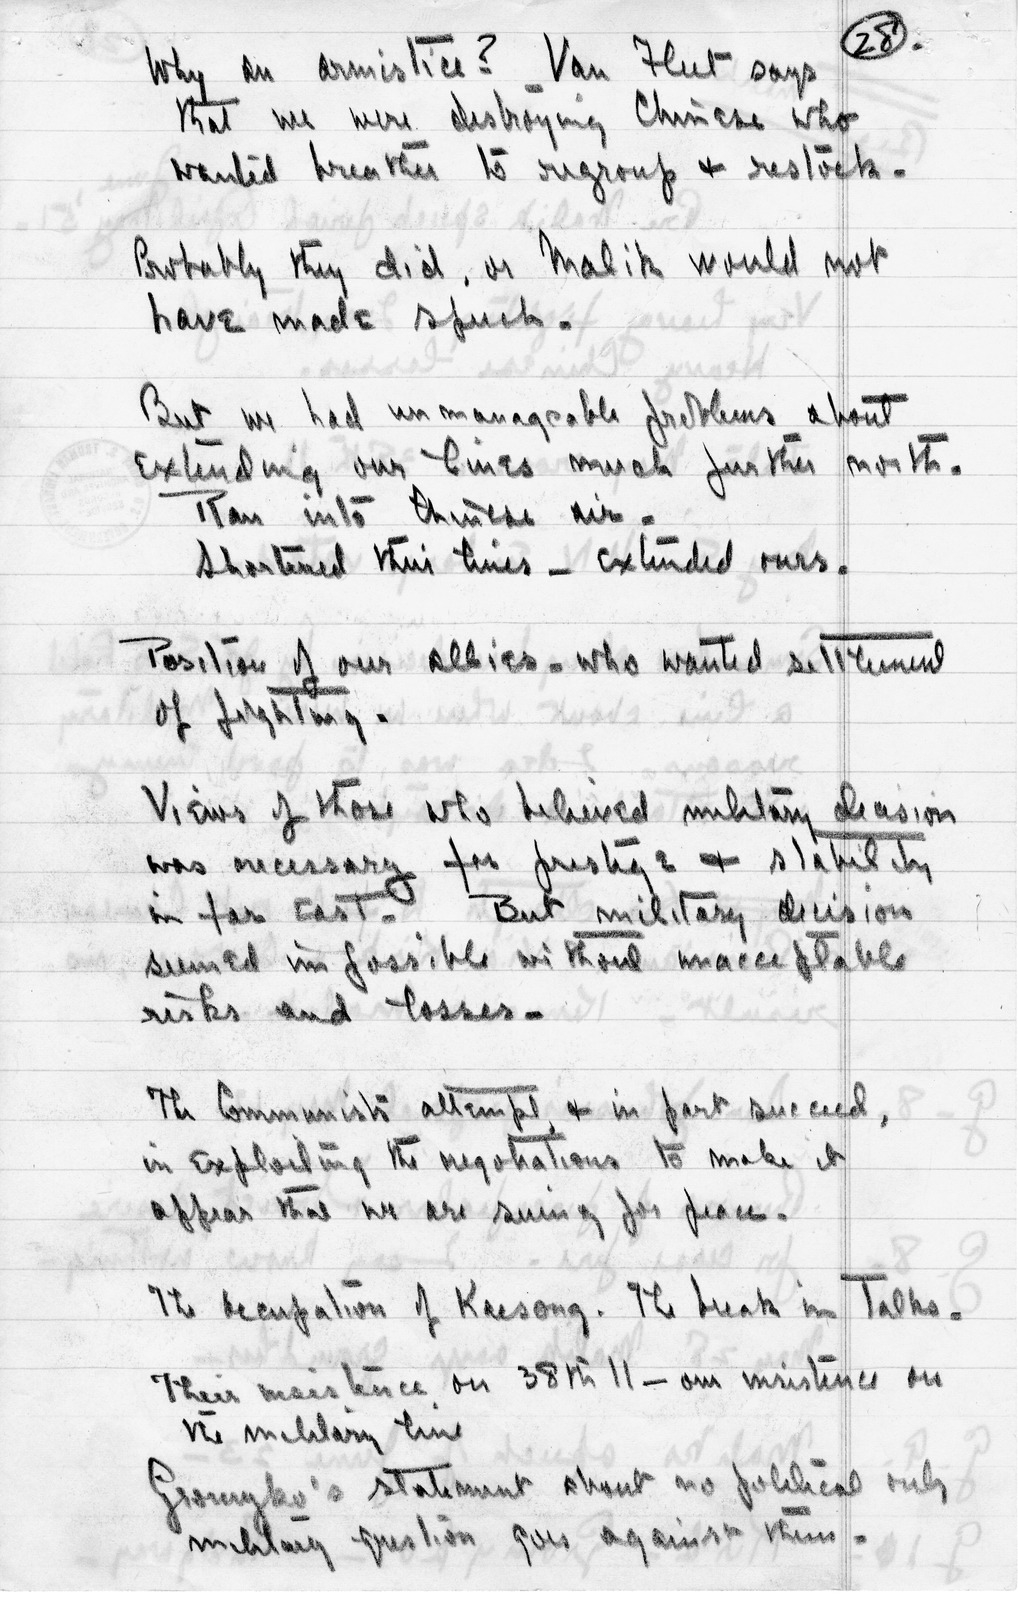 28.
Why an armistice? Van Fleet says
that we were destroying Chinese who
wanted breather to regroup & restock.
Probably they did, or Malik would not
have made speech.
But we had unmanageable problems about
extending our lines much further north.
Ran into Chinese air.
Shortened their lines – extended ours.
Position of our allies – who wanted settlement
of fighting.
Views of those who believed military decision
was necessary for prestige & stability
in far east. But military decision
seemed impossible without unacceptable
risks and losses –
The Communists attempt, & in part succeed,
in exploiting the negotiations to make it
appear that we are suing for peace.
The occupation of Kaesong. The break in Talks.
Their insistence on 38th || – our insistence on
the military line
Gromyko's statement about no political only
military question goes against them.